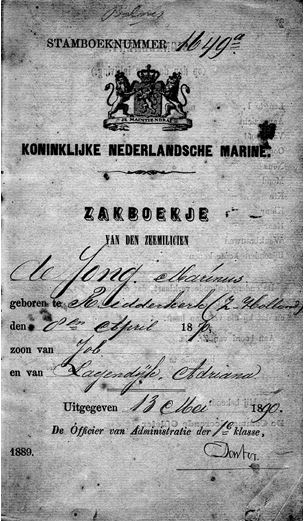 STAMBOEKNUMMER 1649a
JE MAINTIENDRAI
KONINKLIJKE NEDERLANDSCHE MARINE.
ZAKBOEKJE
VAN DEN ZEEMILICIEN
de Jong, Marinus
geboren te Ridderkerk (Z. Holland)
den 8sten April 1870.
zoon van Job
en van Lagendijk, Adriana
Uitgegeven 13 Mei 1890.
De Officier van Administratie der 1e klasse,
1889.